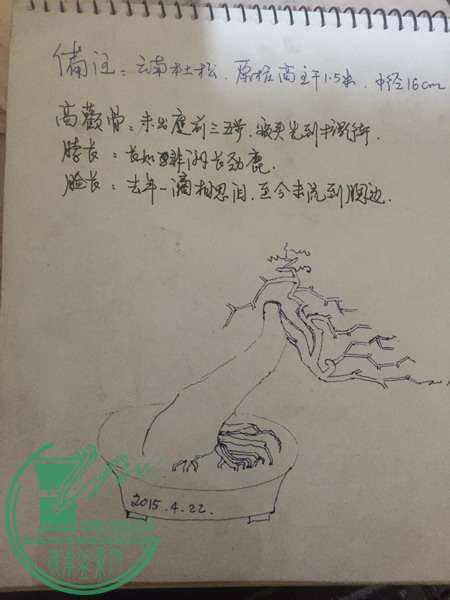 備注：云南杜松．原桩高主干1.5米．中径16cm
高颧骨：未出庭前三五步，额头先到
脖长：长如非洲长劲鹿．
脸长：去年一滴相思泪．至今未流到腮边．
2015.4.22.